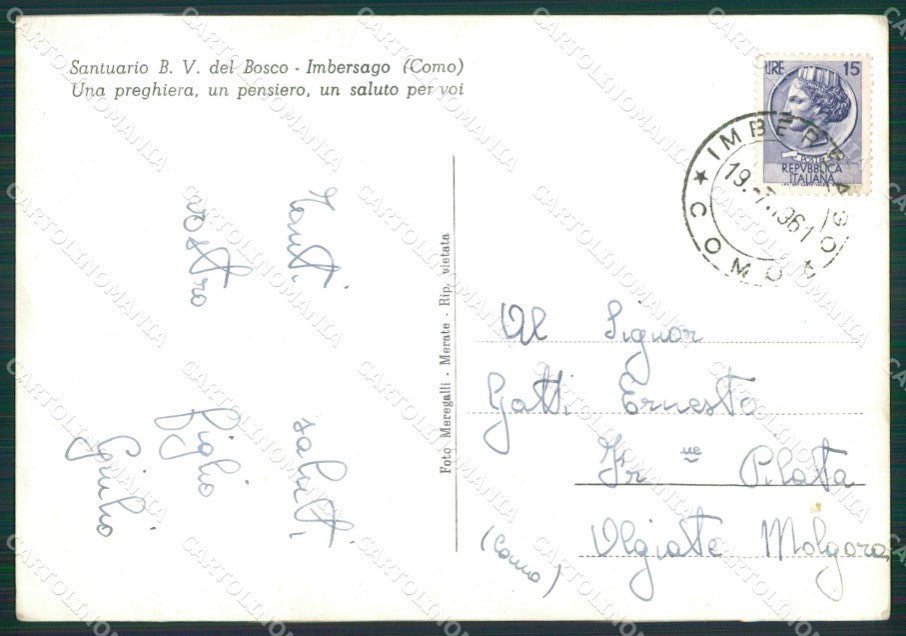 Santuario B. V. del Bosco - Imbersago (Como)
Una preghiera, un pensiero, un saluto per voi
LIRE 15
POSTE
REPVBBLICA
ITALIANA
★ IMBERSAGO ★ COMO
19.-7.1961
Tanti saluti
vostro figlio
Giulio
Foto Meregalli - Merate - Rip. vietata
Al Signor
Gatti Ernesto
Fr ne Pilata
Olgiate Molgora
(Como)
CARTOLINOMANIA